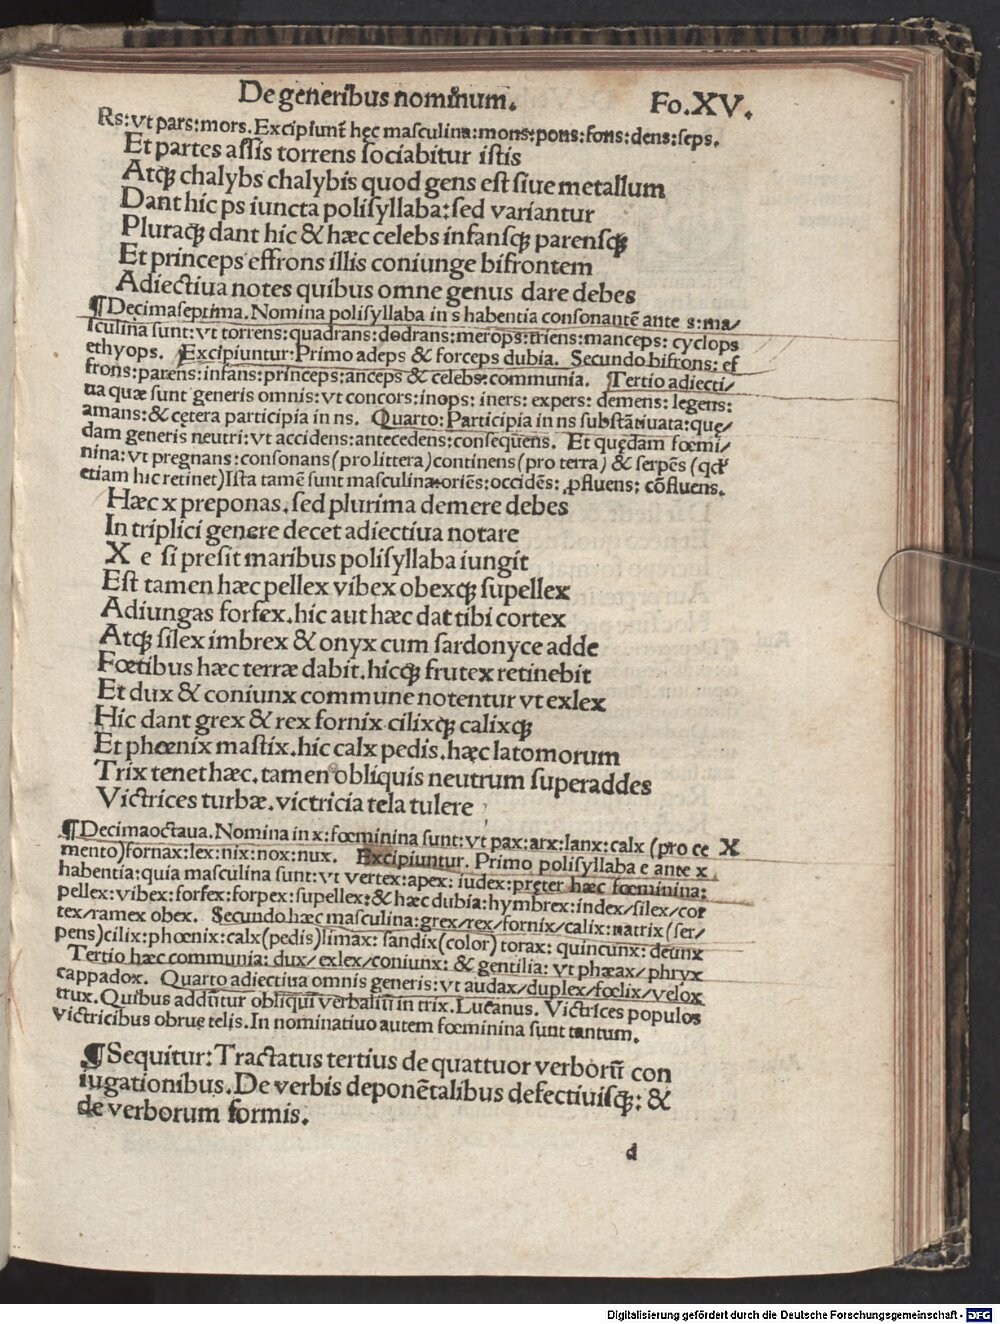 De generibus nominum. Fo.XV.
Rs:vt pars:mors.Excipiunt̃ hęc maſculina:mons:pons:fons:dens:ſeps.
Et partes aſſis torrens ſociabitur iſtis
Atqꝫ chalybs chalybis quod gens eſt ſiue metallum
Dant hic ps iuncta poliſyllaba:ſed variantur
Pluraqꝫ dant hic & hæc celebs infanſqꝫ parenſqꝫ
Et princeps effrons illis coniunge bifrontem
Adiectiua notes quibus omne genus dare debes
¶Decimaſeptima.Nomina poliſyllaba in s habentia conſonantē ante s:ma/
ſculina ſunt:vt torrens:quadrans:dodrans:merops:triens:manceps: cyclops
ethyops. Excipiuntur:Primo adeps & forceps dubia. Secundo bifrons: ef
frons:parens:infans:princeps:anceps & celebs:communia. Tertio adiecti/
ua quæ ſunt generis omnis:vt concors:inops: iners: expers: demens: legens:
amans:& cętera participia in ns. Quarto:Participia in ns ſubſtātiuata:quę/
dam generis neutri:vt accidens:antecedens:conſequens. Et quędam fœmi/
nina:vt pregnans:conſonans(pro littera)continens(pro terra) & ſerpēs (qď
etiam hic retinet)Iſta tamē ſunt maſculina:oriēs:occidēs: ꝓfluens: cōfluens.
Hæc x preponas.ſed plurima demere debes
In triplici genere decet adiectiua notare
X e ſi preſit maribus poliſyllaba iungit
Eſt tamen hæc pellex vibex obexqꝫ ſupellex
Adiungas forfex.hic aut hæc dat tibi cortex
Atqꝫ ſilex imbrex & onyx cum ſardonyce adde
Fœtibus hæc terræ dabit.hicqꝫ frutex retinebit
Et dux & coniunx commune notentur vt exlex
Hic dant grex & rex fornix cilixqꝫ calixqꝫ
Et phœnix maſtix.hic calx pedis.hæc latomorum
Trix tenet hæc.tamen obliquis neutrum ſuperaddes
Victrices turbæ.victricia tela tulere
¶Decimaoctaua.Nomina in x:fœminina ſunt:vt pax:arx:lanx:calx (pro ce X
mento)fornax:lex:nix:nox:nux. Excipiuntur. Primo poliſyllaba e ante x
habentia:quia maſculina ſunt:vt vertex:apex: iudex:pręter hæc fœminina:
pellex:vibex:forfex:forpex:ſupellex:& hæc dubia:hymbrex:index/ſilex/cor
tex/ramex obex. Secundo hæc maſculina:grex/rex/fornix/calix:natrix(ſer/
pens)cilix:phœnix:calx(pedis)limax: ſandix(color) torax: quincunx: deunx
Tertio hæc communia: dux/exlex/coniunx: & gentilia: vt phæax/phryx
cappadox. Quarto adiectiua omnis generis:vt audax/duplex/fœlix/velox
trux.Quibus addūtur obliqui verbaliū in trix.Lucanus. Victrices populos
victricibus obruę telis.In nominatiuo autem fœminina ſunt tantum.
¶Sequitur:Tractatus tertius de quattuor verborū con
iugationibus.De verbis deponētalibus defectiuiſqꝫ: &
de verborum formis.
d
Digitalisierung gefördert durch die Deutsche Forschungsgemeinschaft - DFG